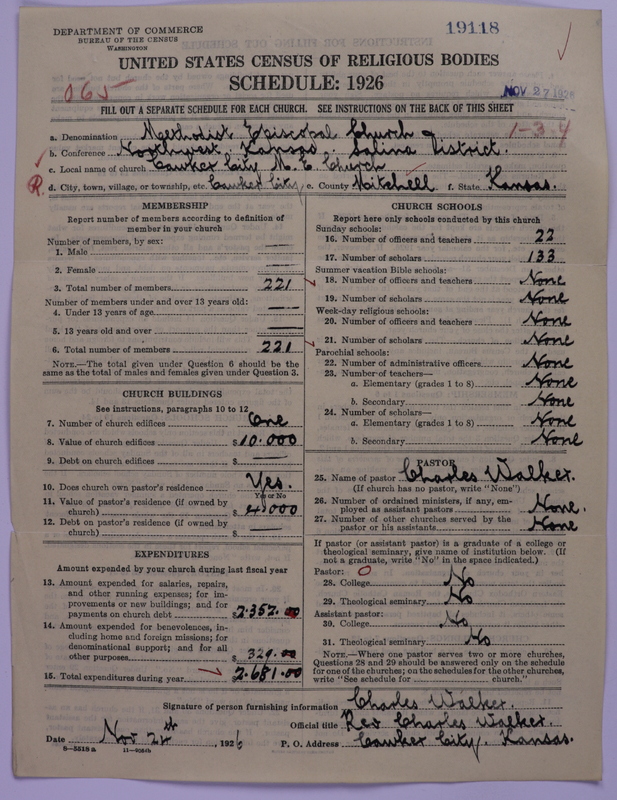 DEPARTMENT OF COMMERCE
BUREAU OF THE CENSUS
WASHINGTON
19118
UNITED STATES CENSUS OF RELIGIOUS BODIES
SCHEDULE: 1926
065
NOV 27 1926
FILL OUT A SEPARATE SCHEDULE FOR EACH CHURCH. SEE INSTRUCTIONS ON THE BACK OF THIS SHEET
1-3 4
a. Denomination Methodist Episcopal Church
b. Conference Northwest Kansas. Salina District.
c. Local name of church Cawker City M. E. Church
R. d. City, town, village, or township, etc. Cawker City e. County Mitchell f. State Kansas.
MEMBERSHIP
Report number of members according to definition of
member in your church
Number of members, by sex:
1. Male —
2. Female —
3. Total number of members 221
Number of members under and over 13 years old:
4. Under 13 years of age —
5. 13 years old and over —
6. Total number of members 221
NOTE.—The total given under Question 6 should be
same as the total of males and females given under Question 3.
CHURCH BUILDINGS
See instructions, paragraphs 10 to 12
7. Number of church edifices One
8. Value of church edifices $10.000
9. Debt on church edifices $ —
10. Does church own pastor's residence Yes.
Yes or No
11. Value of pastor's residence (if owned by
church) $4000
12. Debt on pastor's residence (if owned by
church) $ —
EXPENDITURES
Amount expended by your church during last fiscal year
13. Amount expended for salaries, repairs,
and other running expenses; for im-
provements or new buildings; and for
payments on church debt $2.352.00
14. Amount expended for benevolences, in-
cluding home and foreign missions; for
denominational support; and for all
other purposes $ 329.00
15. Total expenditures during year $2.681.00
CHURCH SCHOOLS
Report here only schools conducted by this church
Sunday schools:
16. Number of officers and teachers 22
17. Number of scholars 133
Summer vacation Bible schools:
18. Number of officers and teachers None
19. Number of scholars None
Week-day religious schools:
20. Number of officers and teachers None
21. Number of scholars None
Parochial schools:
22. Number of administrative officers None
23. Number of teachers—
a. Elementary (grades 1 to 8) None
b. Secondary None
24. Number of scholars—
a. Elementary (grades 1 to 8) None
b. Secondary None
PASTOR
25. Name of pastor Charles Walker.
(If church has no pastor, write "None")
26. Number of ordained ministers, if any, em-
ployed as assistant pastors None.
27. Number of other churches served by the
pastor or his assistants None
If pastor (or assistant pastor) is a graduate of a college or
theological seminary, give name of institution below. (If
not a graduate, write "No" in the space indicated.)
Pastor: O
28. College No
29. Theological seminary No
Assistant pastor:
30. College No
31. Theological seminary No
NOTE.—Where one pastor serves two or more churches,
Questions 28 and 29 should be answered only on the schedule
for one of the churches; on the schedules for the other churches,
write "See schedule for church."
Signature of person furnishing information Charles Walker.
Official title Rev Charles Walker.
Date Nov 24th, 1926 P. O. Address Cawker City. Kansas.
8—5518a 11—9554b